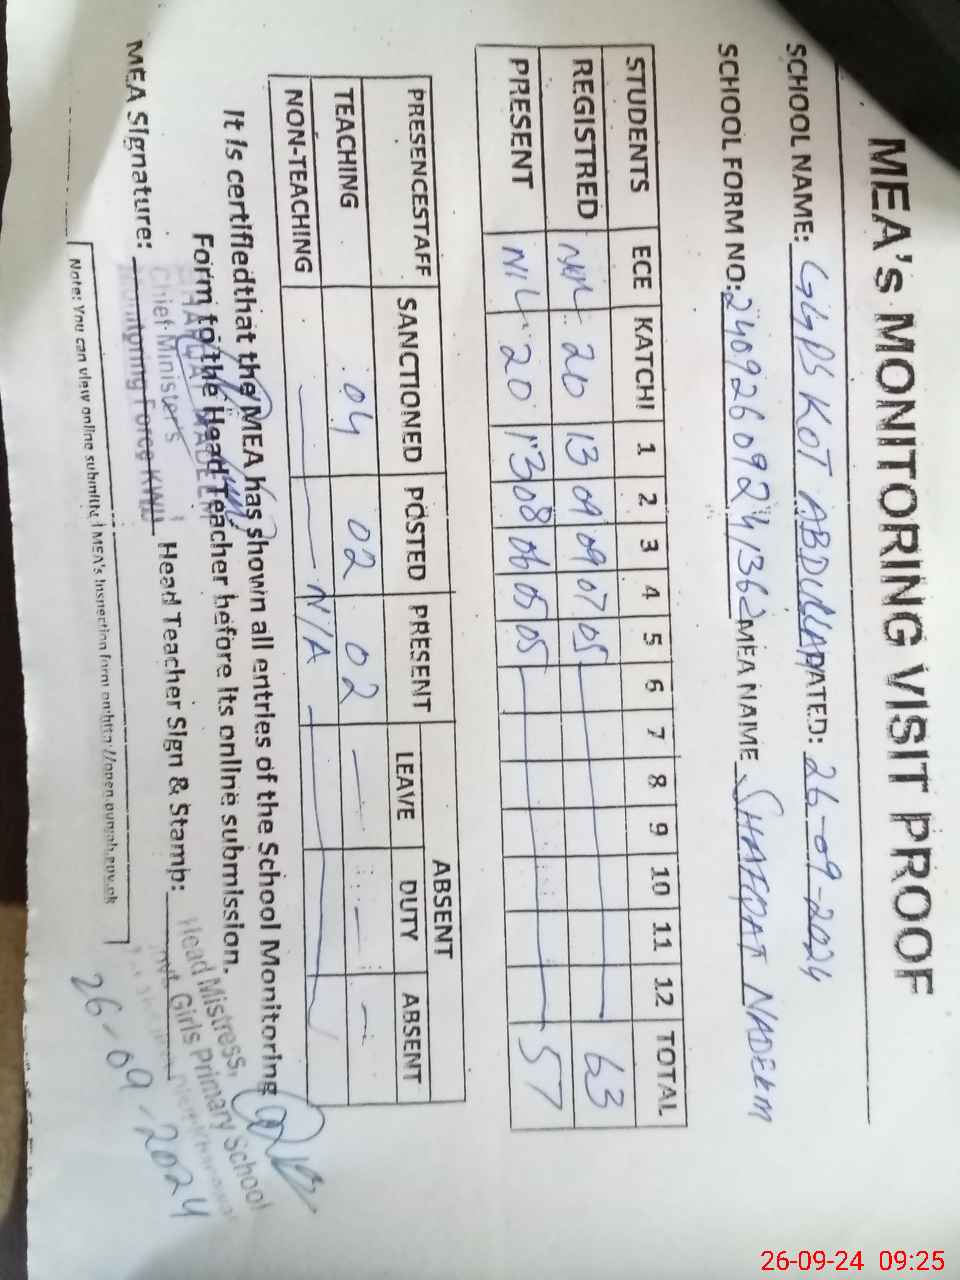 MEA's MONITORING VISIT PROOF
SCHOOL NAME: GGPS KOT ABDULLA DATED: 26-09-2024
SCHOOL FORM NO: 24092609241362 MEA NAME SHAFQAT NADEEM
STUDENTS ECE KATCHI 1 2 3 4 5 6 7 8 9 10 11 12 TOTAL
REGISTRED 20 13 09 09 07 05 63
PRESENT NIL 20 13 08 06 05 05 57
PRESENCESTAFF SANCTIONED POSTED PRESENT ABSENT
LEAVE DUTY ABSENT
TEACHING 04 02 02 — — —
NON-TEACHING — — N/A —
It is certifiedthat the MEA has shown all entries of the School Monitoring
Form to the Head Teacher before its online submission.
MEA Signature: Head Teacher Sign & Stamp:
SHAFQAT NADEEM
Chief Minister's
Monitoring Force KWL
Head Mistress,
Govt. Girls Primary School
26-09-2024
Note: You can view online submitted MEA's Inspection form on http://open.punjab.gov.pk
26-09-24 09:25